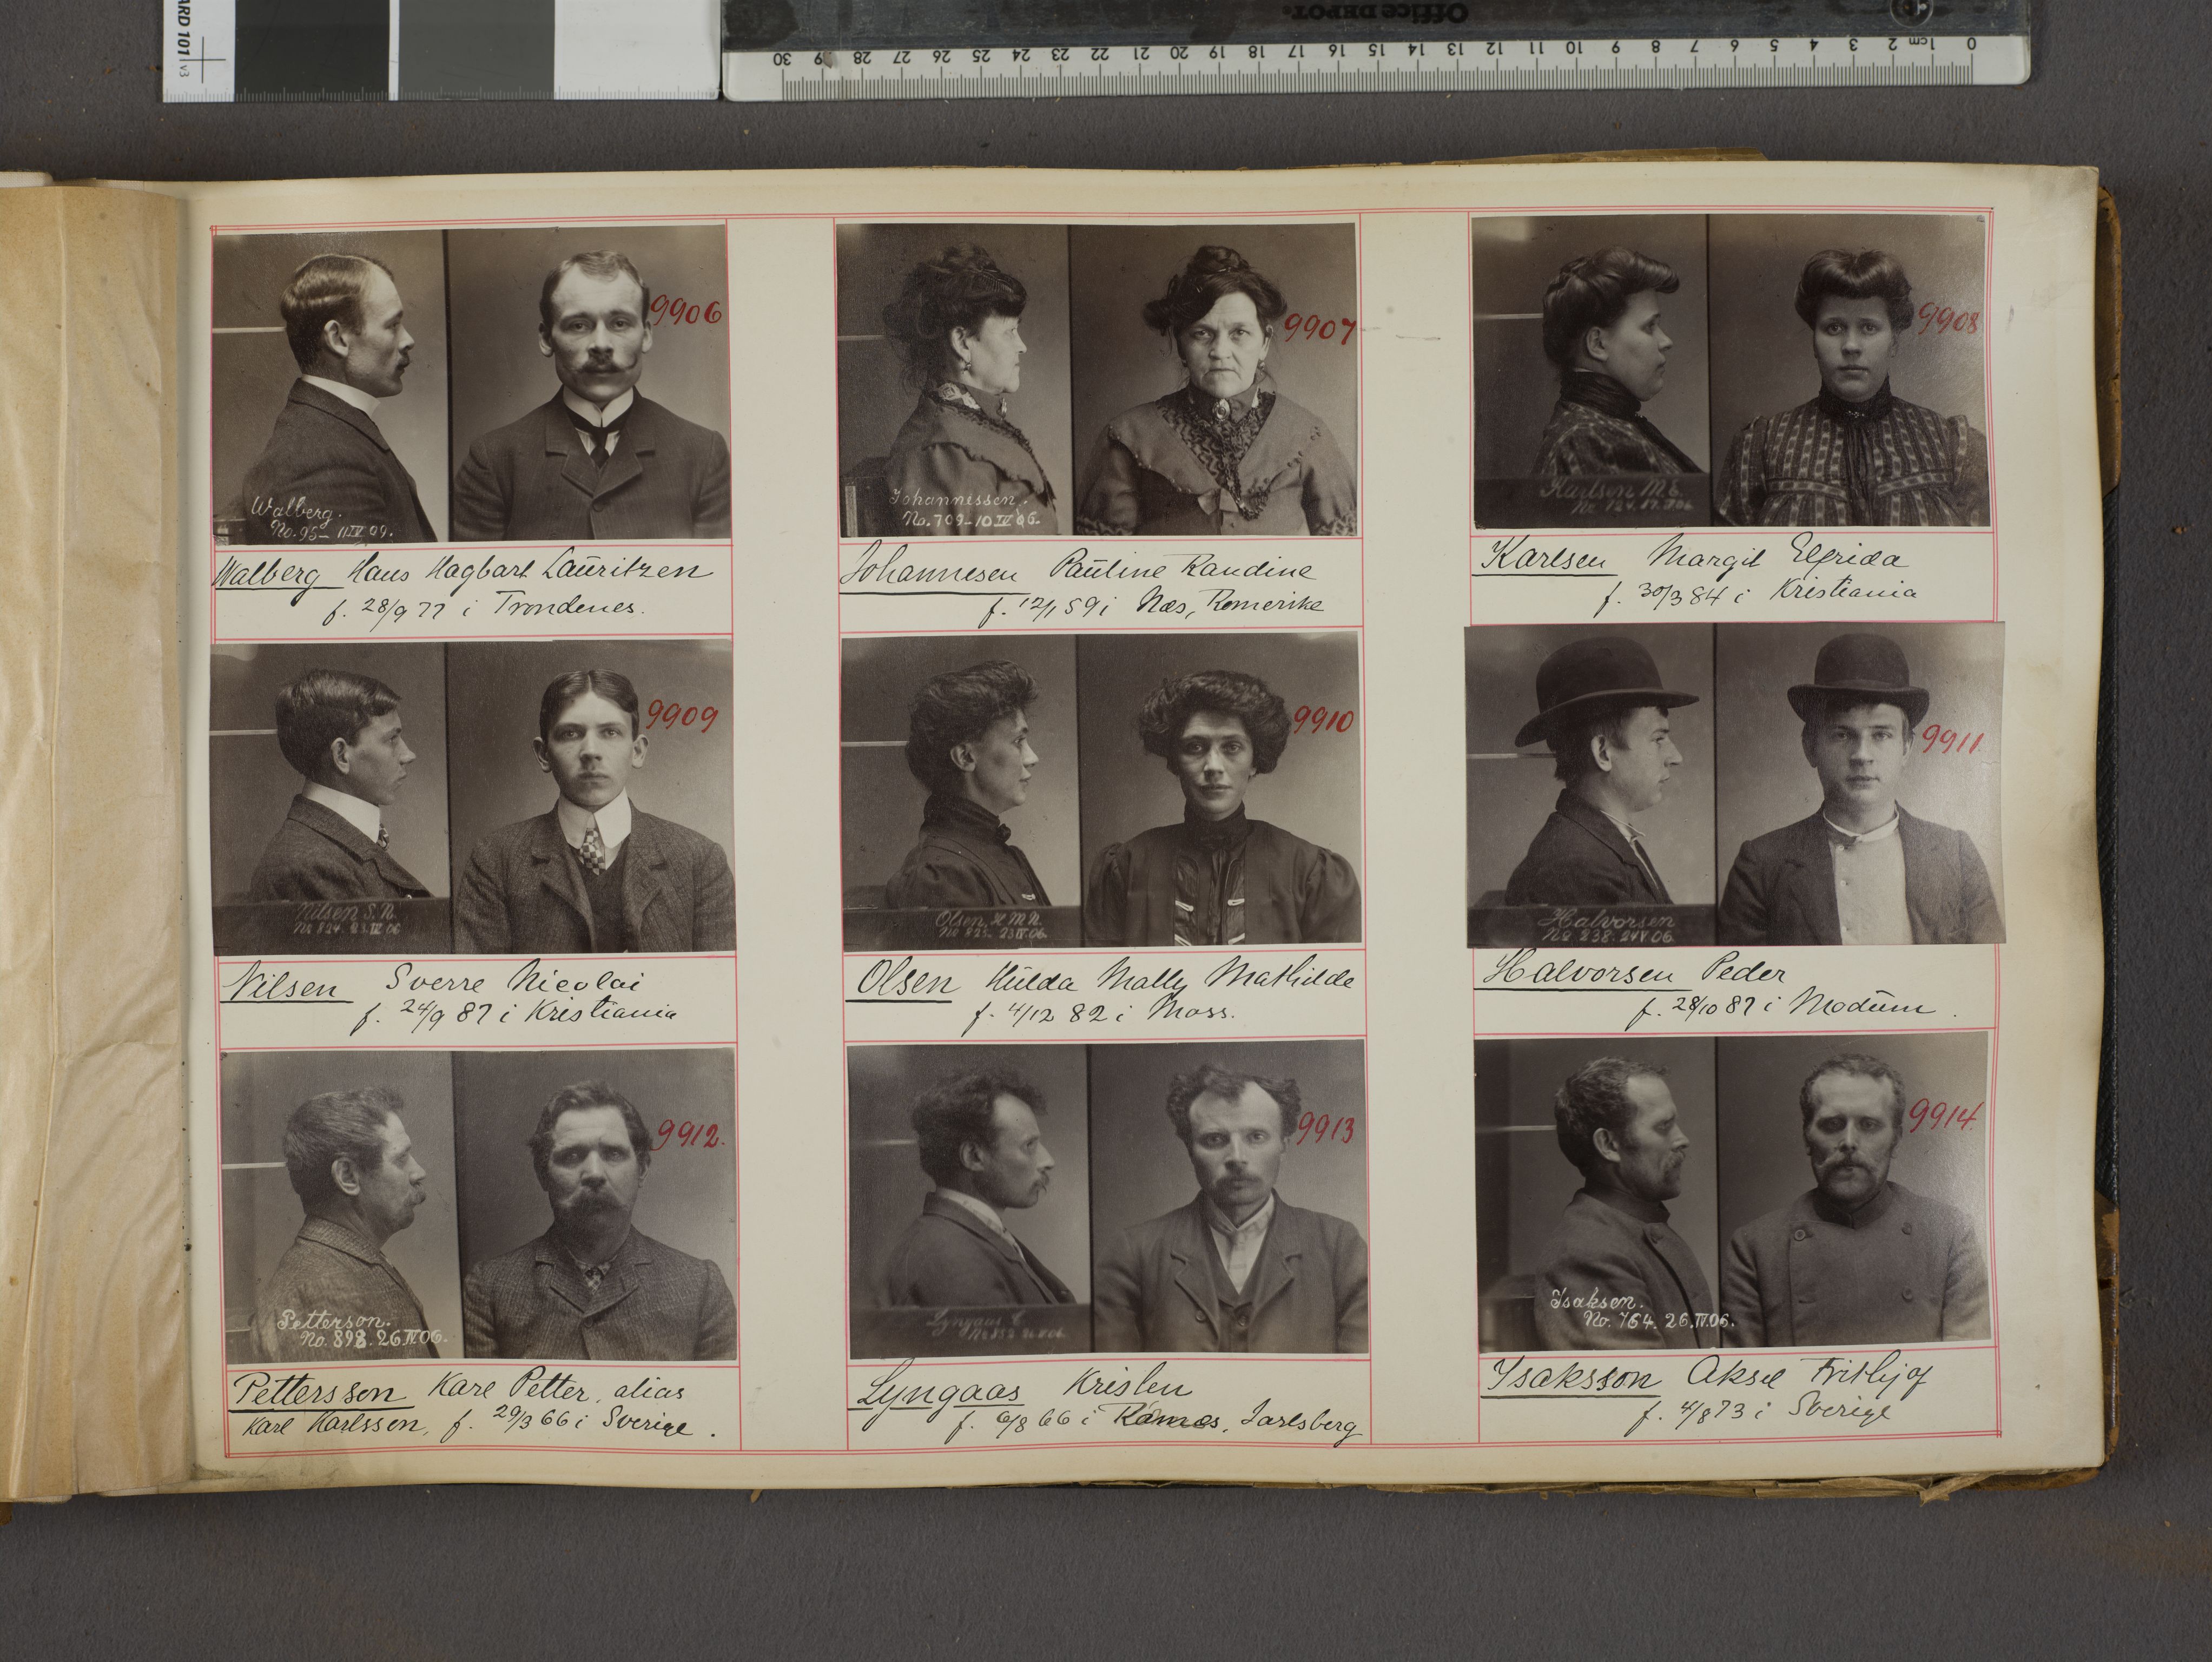 ARD 101 v3
Office DEPOT.
30 29 28 27 26 25 24 23 22 21 20 19 18 17 16 15 14 13 12 11 10 9 8 7 6 5 4 3 2 1cm 0
9906
Walberg.
No. 95- 11 IV 09.
Walberg Hans Hagbart Lauritzen
f. 28/9 77 i Trondenes.
9907
Johannessen.
No. 709-10 IV 06.
Johannesen Pauline Randine
f. 12/1 59 i Næs, Romerike
9908
Karlsen M.E.
No 724.
Karlsen Margit Elfrida
f. 30/3 84 i Kristiania
9909
Nilsen S. N.
No 824. 23. IV. 06
Nilsen Sverre Nicolai
f. 24/9 87 i Kristiania
9910
Olsen, H. M. M.
No 825. 23 IV. 06.
Olsen Hulda Mally Mathilde
f. 4/12 82 i Moss.
9911
Halvorsen
No 838. 24 V. 06.
Halvorsen Peder
f. 28/10 87 i Modum.
9912.
Petterson.
No. 898. 26 IV 06.
Pettersson Karl Petter, alias
Karl Karlsson, f. 29/3 66 i Sverige.
9913
Lyngaas
Lyngaas Kristen
f. 6/8 66 i Ramnæs, Jarlsberg
9914
Isaksen.
No. 764. 26. IV. 06.
Isaksson Aksel Frithjof
f. 4/8 73 i Sverige